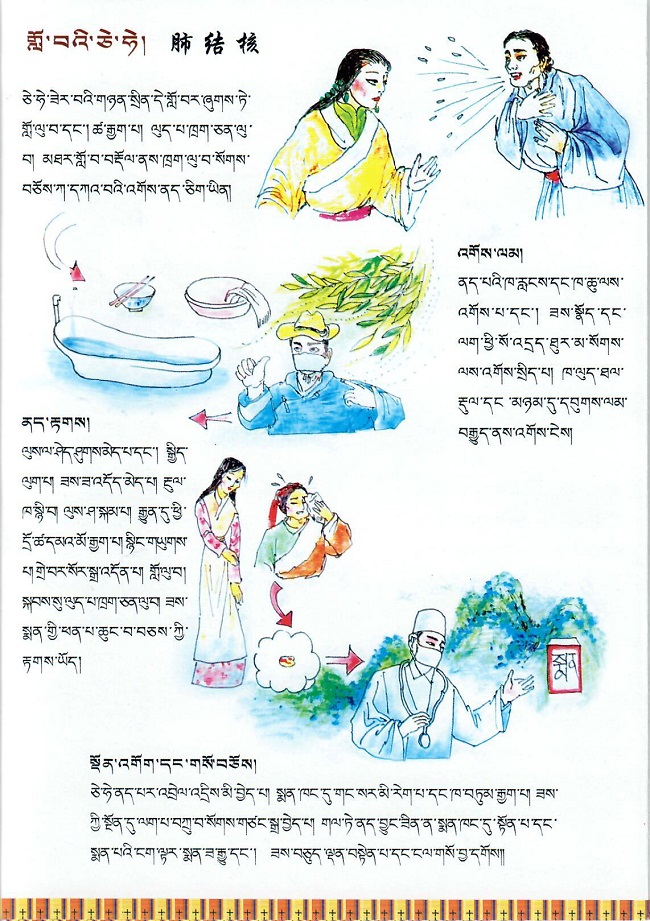 གློ་བའི་ཅེ་ཧེ། 肺结核
ཅེ་ཧེ་ཟེར་བའི་གཉན་སྲིན་དེ་གློ་བར་ཞུགས་ཏེ་
གློ་ལུ་བ་དང་། ཚ་རྒྱག་པ། ལུད་པ་ཁྲག་ཅན་ལུ་
བ། མཐར་གློ་བ་བརྡོལ་ནས་ཁྲག་ལུ་བ་སོགས་
བཅོས་ཀ་དཀའ་བའི་འགོས་ནད་ཅིག་ཡིན།
འགོས་ལམ།
ནད་པའི་ཁ་རླངས་དང་ཁ་ཆུ་ལས་
འགོས་པ་དང་། ཟས་སྣོད་དང་
ལག་ཕྱི་སོ་འདྲད་ཐུར་མ་སོགས་
ལས་འགོས་སྲིད་པ། ཁ་ལུད་ཐལ་
རྡུལ་དང་མཉམ་དུ་དབུགས་ལམ་
བརྒྱུད་ནས་འགོས་ངེས།
ནད་རྟགས།
ལུས་ལ་ཤེད་ཤུགས་མེད་པ་དང་། སྒྱིད་
ལུག་པ། ཟས་ཟ་འདོད་མེད་པ། རྔུལ་
ཁ་སྙི་བ། ལུས་ཤ་སྐམ་པ། རྒྱུན་དུ་ཕྱི་
དྲོ་ཚ་དམའ་མོ་རྒྱག་པ། སྙིང་གཡུགས་
པ། གྲེ་བར་སོར་སྒྲ་འདོན་པ། གློ་ལུ་བ།
སྐབས་སུ་ལུད་པ་ཁྲག་ཅན་ལུ་བ། ཟས་
སྨན་གྱི་ཕན་པ་ཆུང་བ་བཅས་ཀྱི་
རྟགས་ཡོད།
སྨན
སྔོན་འགོག་དང་གསོ་བཅོས།
ཅེ་ཧེ་ནད་པར་འབྲེལ་འདྲིས་མི་བྱེད་པ། སྨན་ཁང་དུ་གང་སར་མི་རེག་པ་དང་ཁ་བཏུམ་རྒྱག་པ། ཟས་
ཀྱི་སྔོན་དུ་ལག་པ་བཀྲུ་བ་སོགས་གཙང་སྦྲ་བྱེད་པ། གལ་ཏེ་ནད་བྱུང་ཟིན་ན་སྨན་ཁང་དུ་སྟོན་པ་དང་
སྨན་པའི་ངག་ལྟར་སྨན་ཟ་རྒྱུ་དང་། ཟས་བཅུད་ལྡན་བསྟེན་པ་དང་ངལ་གསོ་བྱ་དགོས།།